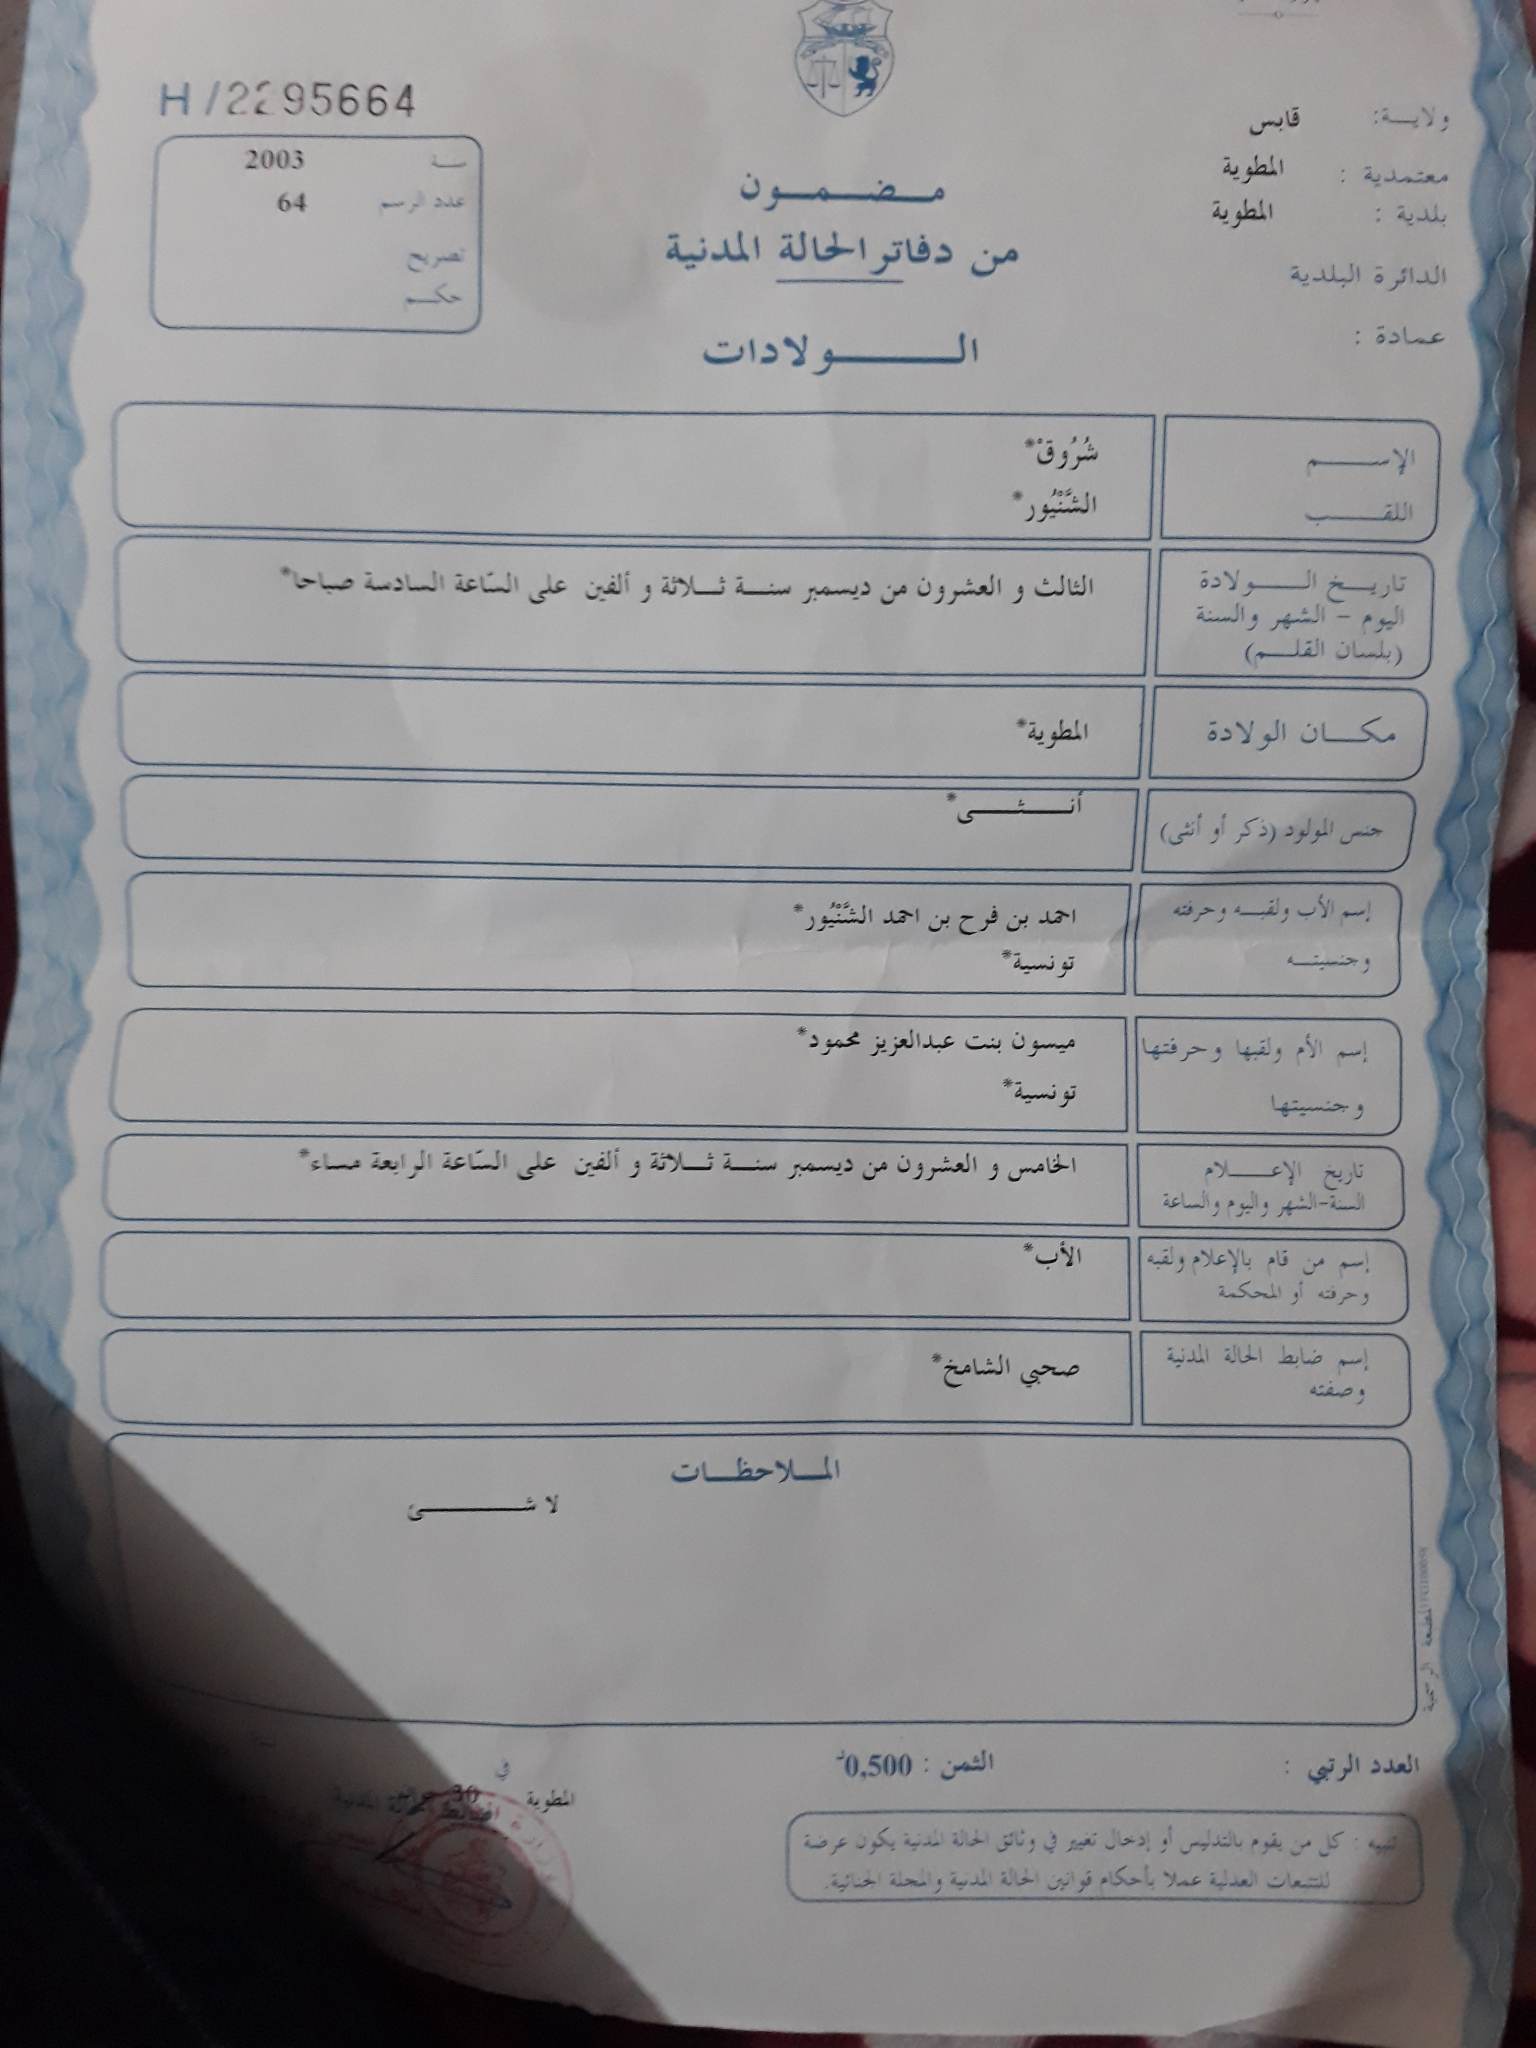 H/2295664
ولايـــة: قابس
معتمدية : المطوية
بلدية : المطوية
الدائرة البلدية
عمادة :
سـنة 2003
عدد الرسم 64
تصريح
حكـــم
مـــضـــمـــون
من دفاتر الحالة المدنية
الـــــــولادات
الإســـــم شُرُوقْ*
اللقـــــب الشَّنْيُور*
تاريـــخ الـــولادة
اليوم - الشهر والسنة
(بلسان القلـــم)
الثالث و العشرون من ديسمبر سنـــة ثـــلاثة و ألفين على السّاعة السادسة صباحا*
مكـــان الولادة المطوية*
جنس المولود (ذكر أو أنثى) أنـــثـــى*
إسم الأب ولقبـــه وحرفته
وجنسيتـــه
احمد بن فرح بن احمد الشَّنْيُور*
تونسية*
إسم الأم ولقبها وحرفتها
وجنسيتها
ميسون بنت عبدالعزيز محمود*
تونسية*
تاريخ الإعـــلام
السنة-الشهر واليوم والساعة
الخامس و العشرون من ديسمبر سنـــة ثـــلاثة و ألفين على السّاعة الرابعة مساء*
إسم من قام بالإعلام ولقبه
وحرفته أو المحكمة
الأب*
إسم ضابط الحالة المدنية
وصفته
صحبي الشامخ*
المـــلاحظـــات
لا شـــــئ
المطبعة الرسمية
العدد الرتبي :
الثمن : 0,500د
المطوية في 30
ضابط الحالة المدنية
تنبيه : كل من يقوم بالتدليس أو إدخال تغيير في وثائق الحالة المدنية يكون عرضة
للتتبعات العدلية عملا بأحكام قوانين الحالة المدنية والمجلة الجنائية.